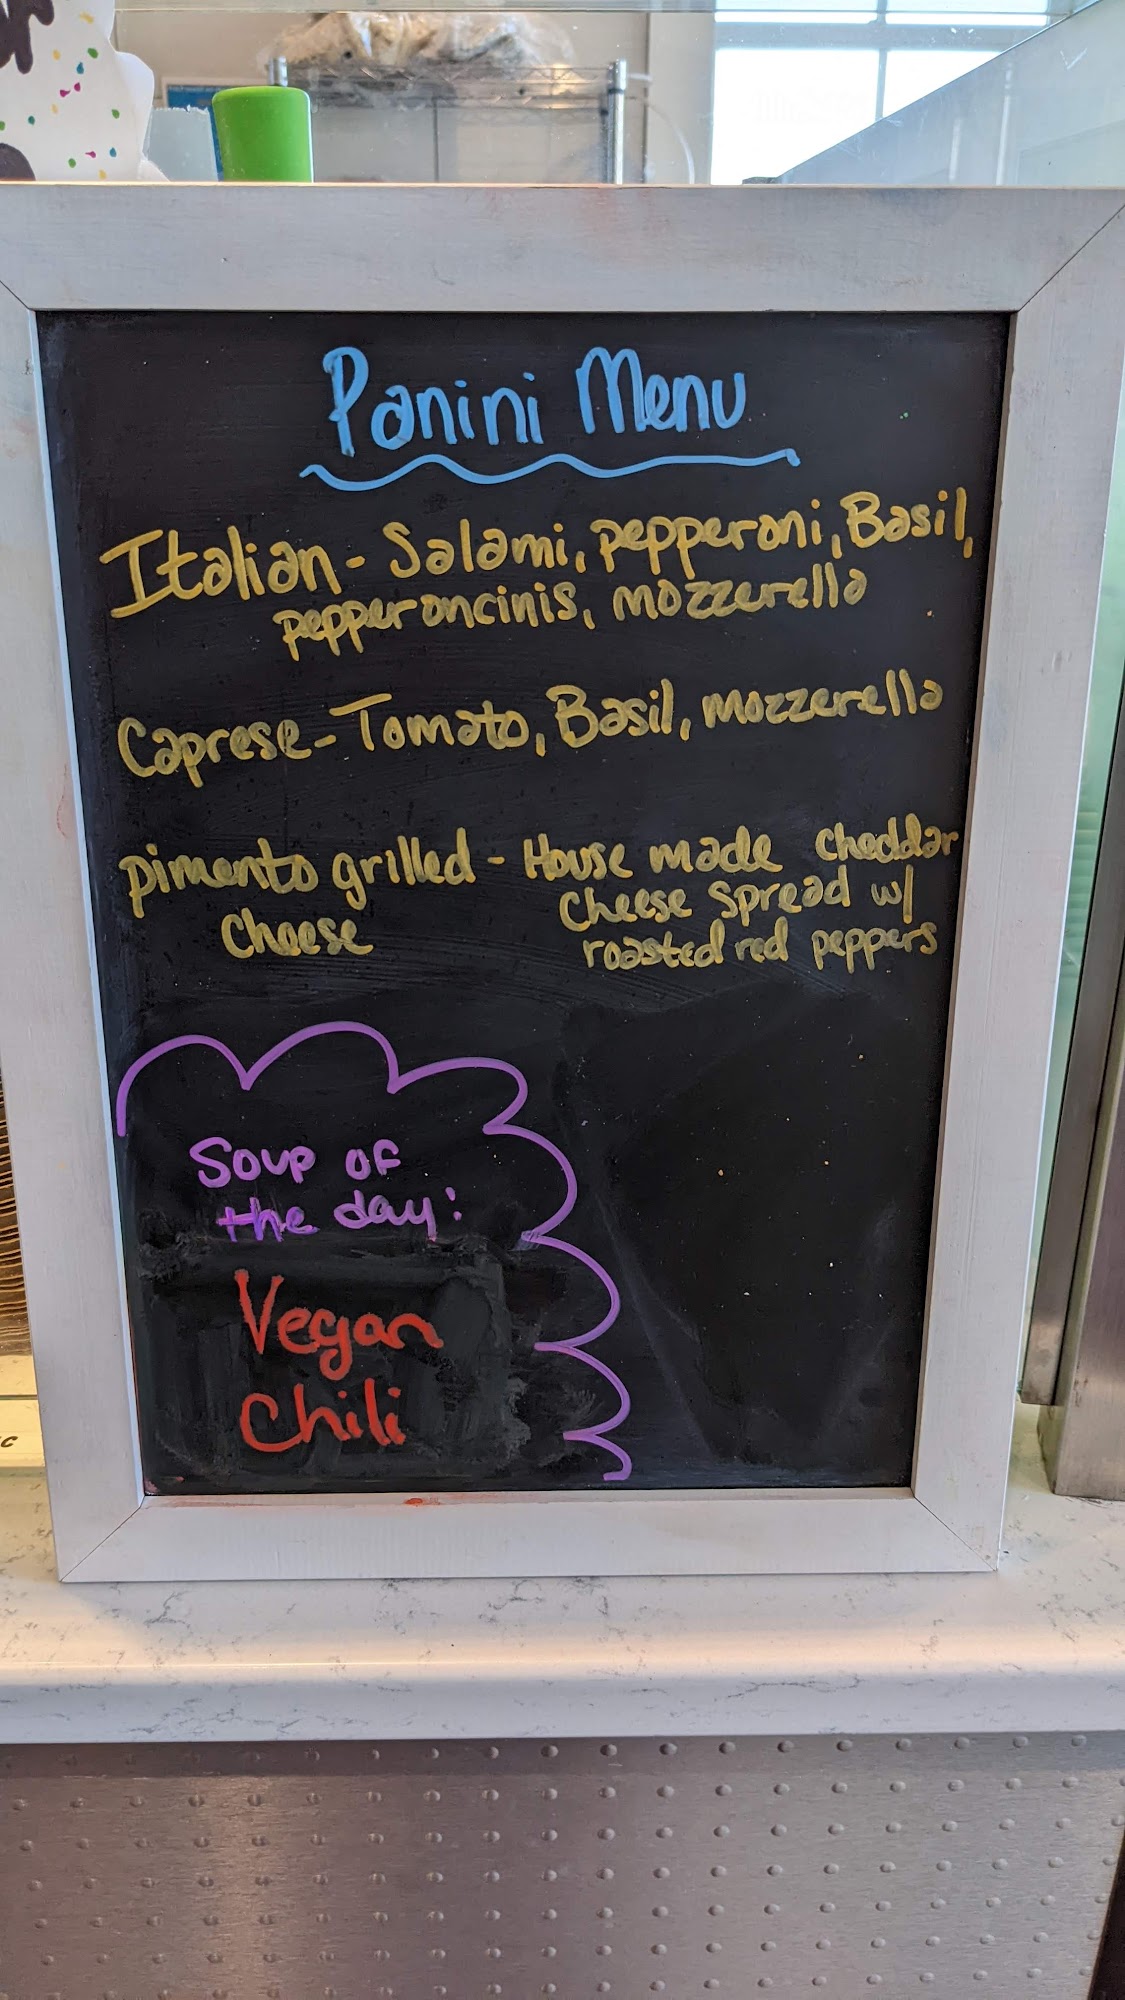 Panini Menu
Italian - Salami, pepperoni, Basil,
pepperoncinis, mozzerella
Caprese - Tomato, Basil, mozzerella
pimento grilled - House made cheddar
cheese cheese spread w/
roasted red peppers
Soup of
the day:
Vegan
Chili